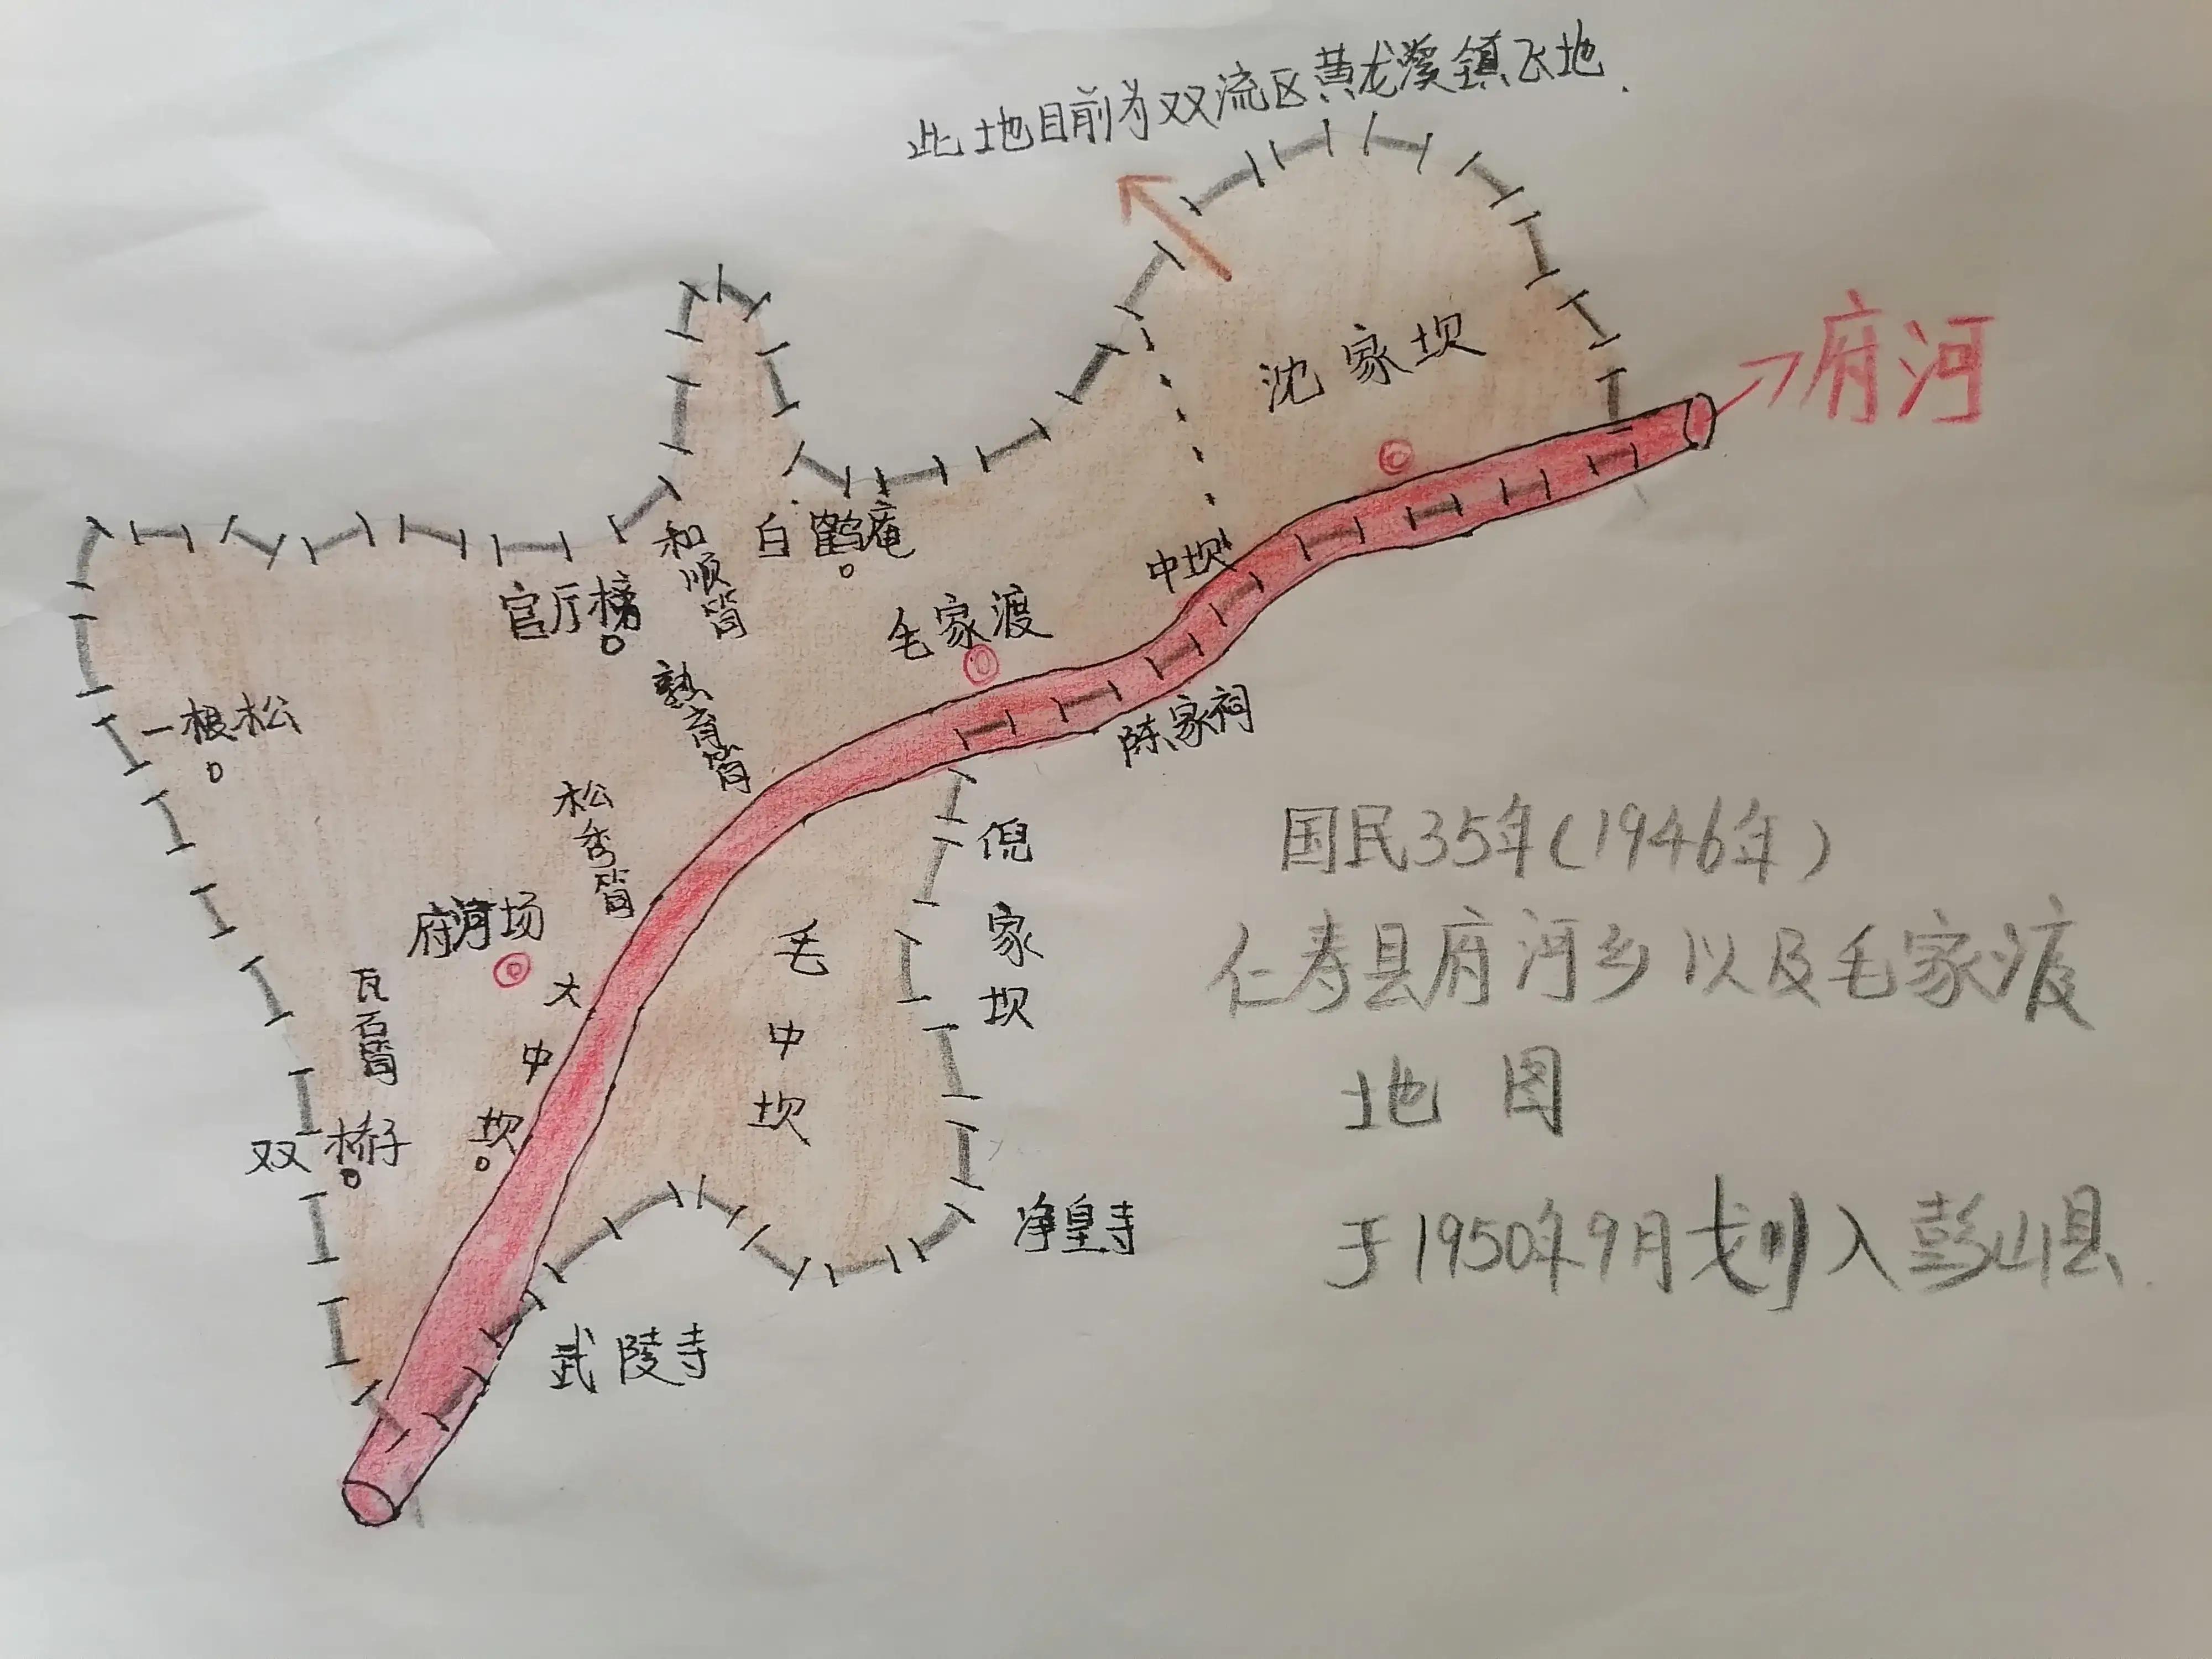 此地目前为双流区黄龙溪镇飞地.
府河
沈家坝
和顺筒
白鹤庵
官厅榜
中坝
毛家渡
熟育筒
一根松
陈家祠
松秀筒
倪家坝
国民35年(1946年)
府河场
毛中坝
仁寿县府河乡以及毛家渡
瓦石筒
大中坝
地图
双桥子
净皇寺
于1950年9月划入彭山县.
武陵寺